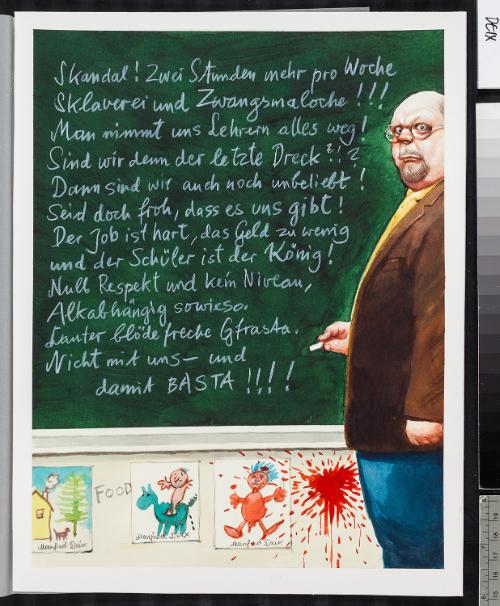 DEIX
Skandal! Zwei Stunden mehr pro Woche
Sklaverei und Zwangsmaloche!!!
Man nimmt uns Lehrern alles weg!
Sind wir denn der letzte Dreck?!?
Dann sind wir auch noch unbeliebt!
Seid doch froh, dass es uns gibt!
Der Job ist hart, das Geld zu wenig
und der Schüler ist der König!
Null Respekt und kein Niveau,
Alkabhängig sowieso.
Lauter blöde freche Gfrasta.
Nicht mit uns – und
damit BASTA !!!!
FOOD
Manfred Deix
Manfred Deix
Manfred Deix